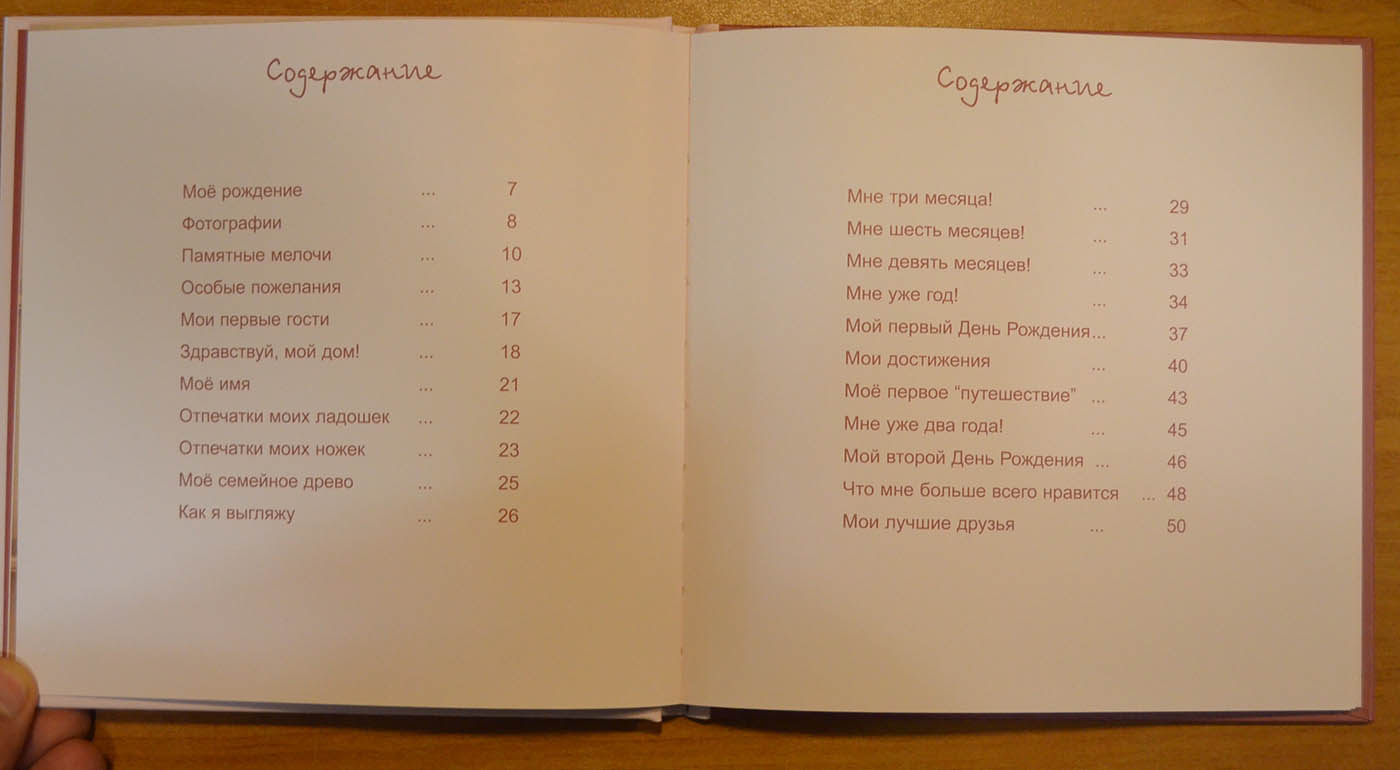 Содержание
Моё рождение ... 7
Фотографии ... 8
Памятные мелочи ... 10
Особые пожелания ... 13
Мои первые гости ... 17
Здравствуй, мой дом! ... 18
Моё имя ... 21
Отпечатки моих ладошек ... 22
Отпечатки моих ножек ... 23
Моё семейное древо ... 25
Как я выгляжу ... 26
Содержание
Мне три месяца! ... 29
Мне шесть месяцев! ... 31
Мне девять месяцев! ... 33
Мне уже год! ... 34
Мой первый День Рождения... 37
Мои достижения ... 40
Моё первое “путешествие” ... 43
Мне уже два года! ... 45
Мой второй День Рождения ... 46
Что мне больше всего нравится ... 48
Мои лучшие друзья ... 50